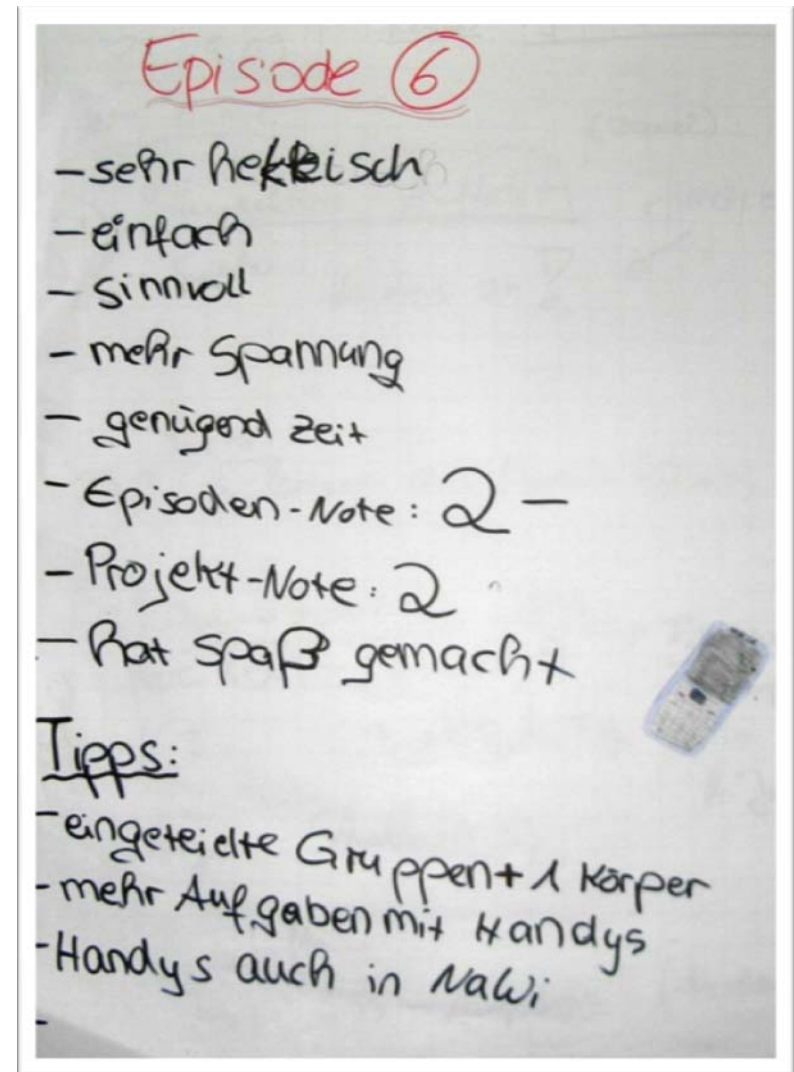 Episode 6
- sehr hektisch
- einfach
- sinnvoll
- mehr Spannung
- genügend Zeit
- Episoden-Note: 2-
- Projekt-Note: 2
- hat spaß gemacht
Tipps:
- eingeteielte Gruppen + 1 Körper
- mehr Aufgaben mit Handys
- Handys auch in NaWi
-